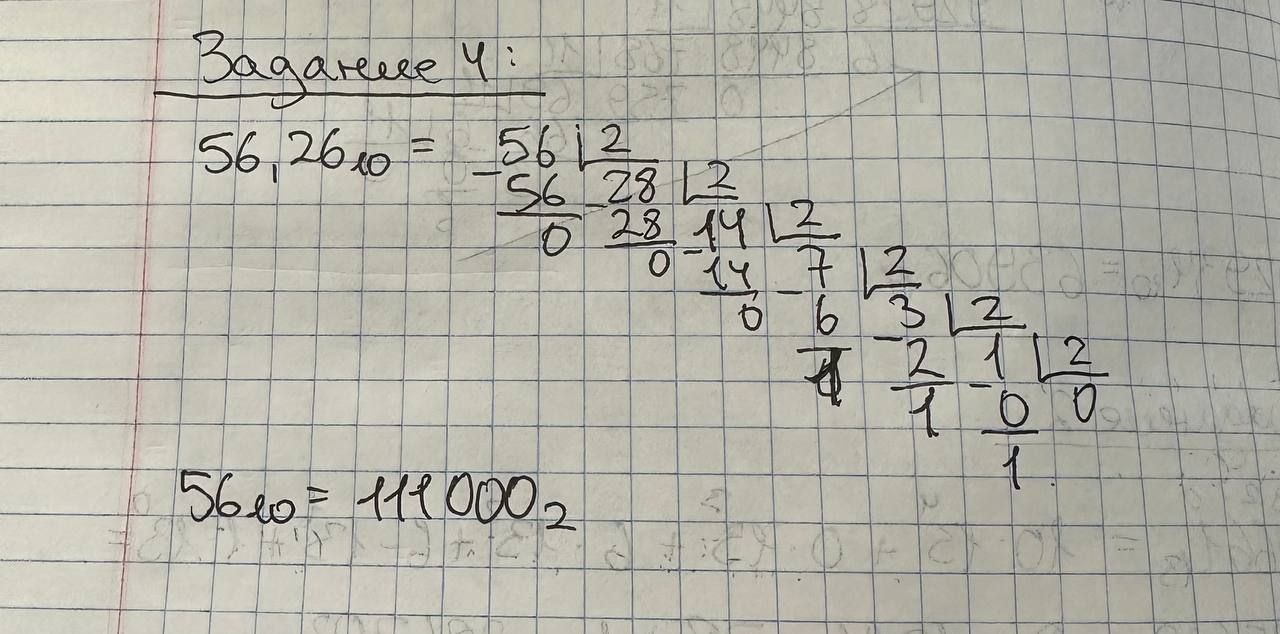 Задание 4:
56,26₁₀ = -56 | 2
56 -28 | 2
0 28 -14 | 2
0 14 -7 | 2
0 6 -3 | 2
1 2 -1 | 2
1 0 0
1
56₁₀ = 111000₂